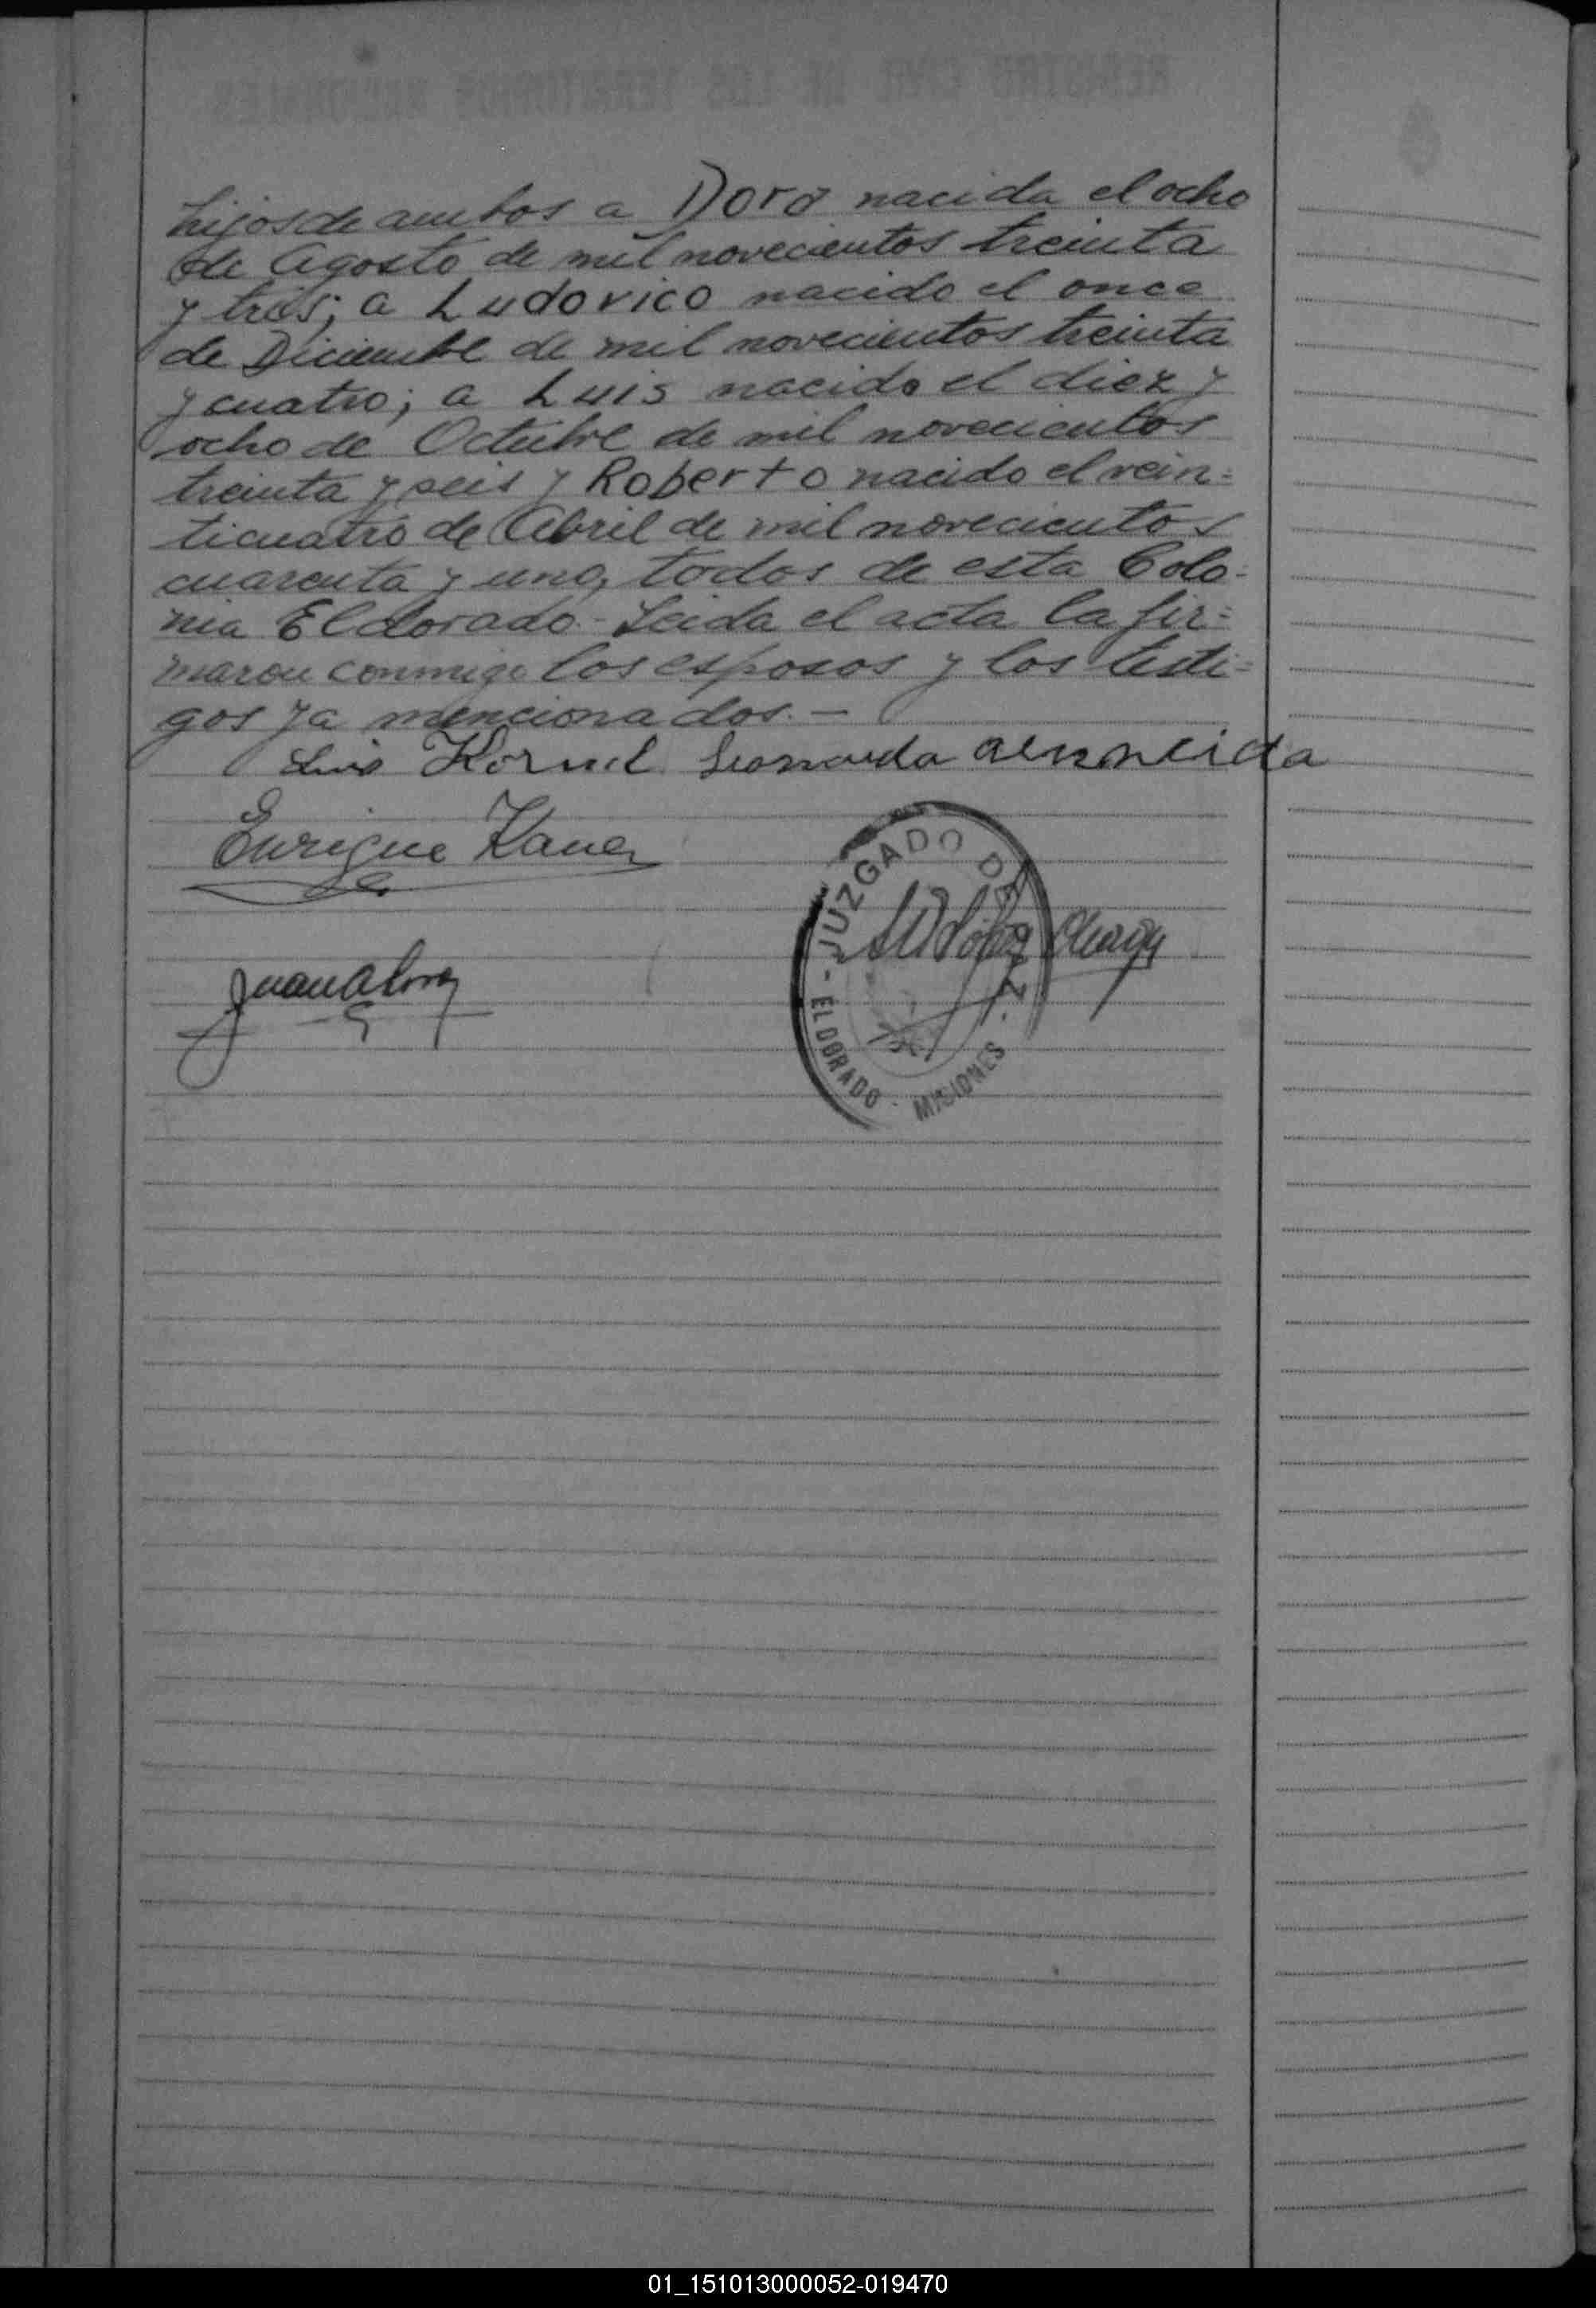 hijos de ambos a Dora nacida el ocho
de Agosto de mil novecientos treinta
y tres; a Ludovico nacido el once
de Diciembre de mil novecientos treinta
y cuatro; a Luis nacido el diez y
ocho de Octubre de mil novecientos
treinta y seis y Roberto nacido el vein=
ticuatro de Abril de mil novecientos
cuarenta y uno, todos de esta Colo-
nia Eldorado.- Leida el acta la fir=
maron conmigo los esposos y los testi=
gos ya mencionados.-
Luis Leonarda
Enrique
JUZGADO DE PAZ
Juan
- ELDORADO - MISIONES -
01_151013000052-019470